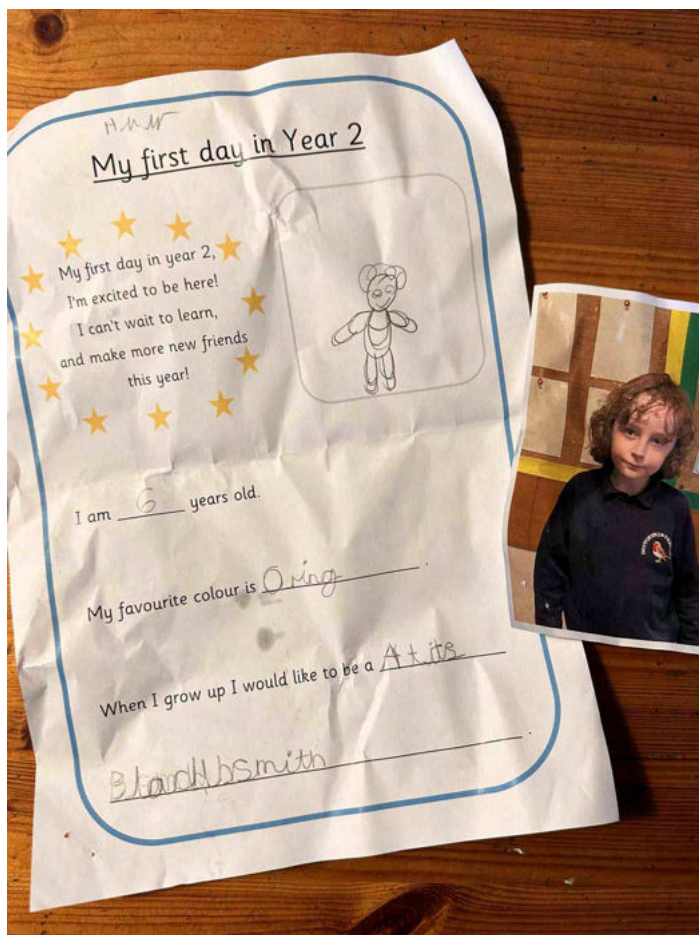 My first day in Year 2
My first day in year 2,
I'm excited to be here!
I can't wait to learn,
and make more new friends
this year!
I am 6 years old.
My favourite colour is Oring.
When I grow up I would like to be a Atits
Blackbsmith.